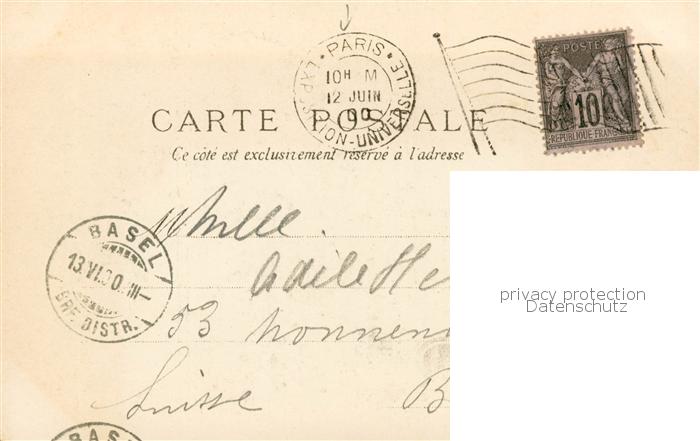 PARIS
EXPOSITION-UNIVERSELLE
10H M
12 JUIN
00
POSTE
10
RÉPUBLIQUE FRANC
CARTE POSTALE
Ce côté est exclusivement réservé à l'adresse
Mlle.
Adèle He
53 Nonnen
Suisse B
BASEL
13.VI.00. III-
BRF. DISTR.
privacy protection
Datenschutz
BASEL